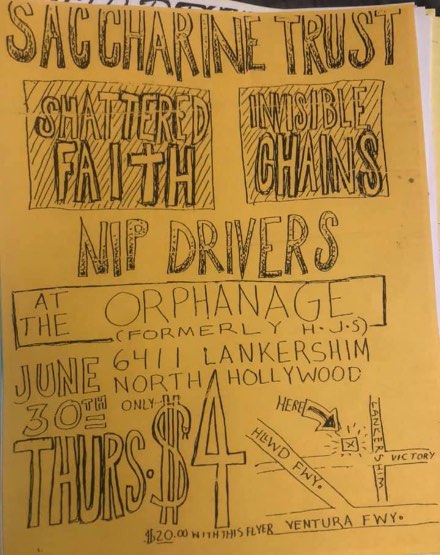 SACCHARINE TRUST
SHATTERED FAITH
INVISIBLE CHAINS
NIP DRIVERS
AT THE ORPHANAGE
(FORMERLY H.J.S)
6411 LANKERSHIM
NORTH HOLLYWOOD
JUNE 30TH
THURS.
ONLY $4
$20.00 WITH THIS FLYER
HERE
HLLWD FWY.
LANCERSHIM
VICTORY
VENTURA FWY.